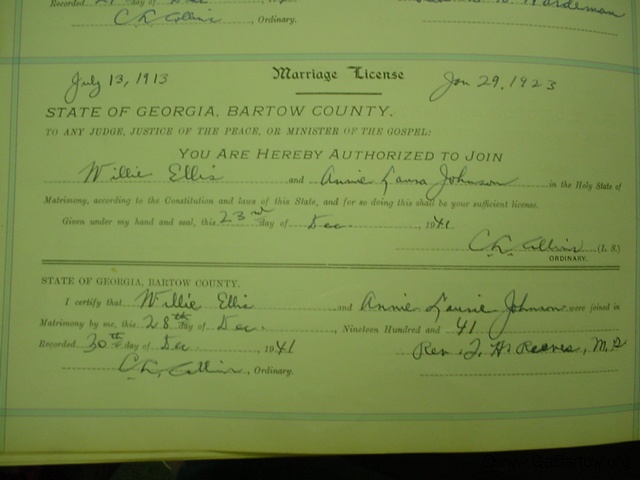 Recorded 29 day of Dec
C. C. Collins, Ordinary. Hardeman
July 13, 1913 Marriage License Jan 29, 1923
STATE OF GEORGIA, BARTOW COUNTY.
TO ANY JUDGE, JUSTICE OF THE PEACE, OR MINISTER OF THE GOSPEL:
YOU ARE HEREBY AUTHORIZED TO JOIN
Willie Ellis and Annie Laura Johnson in the Holy State of
Matrimony, according to the Constitution and laws of this State, and for so doing this shall be your sufficient license.
Given under my hand and seal, this 23rd day of Dec. 1941
C. C. Collins (L. S.)
ORDINARY.
STATE OF GEORGIA, BARTOW COUNTY.
I certify that Willie Ellis and Annie Laurie Johnson were joined in
Matrimony by me, this 28th day of Dec., Nineteen Hundred and 41
Recorded 30th day of Dec, 1941 Rev. J. H. Reeves, M. G.
C. C. Collins, Ordinary.